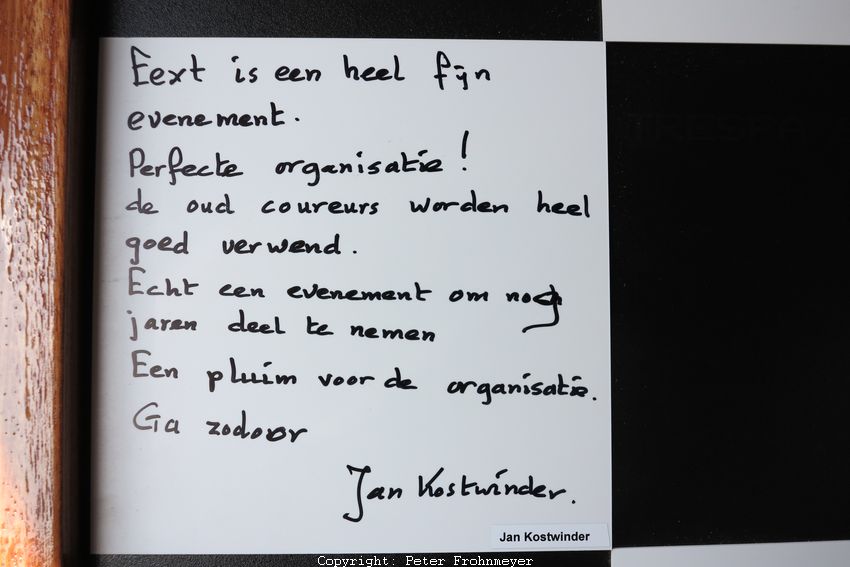 Eext is een heel fijn
evenement.
Perfecte organisatie!
de oud coureurs worden heel
goed verwend.
Echt een evenement om nog
jaren deel te nemen
Een pluim voor de organisatie.
Ga zodoor
Jan Kostwinder.
Jan Kostwinder
TRESPA
Copyright: Peter Frohnmeyer